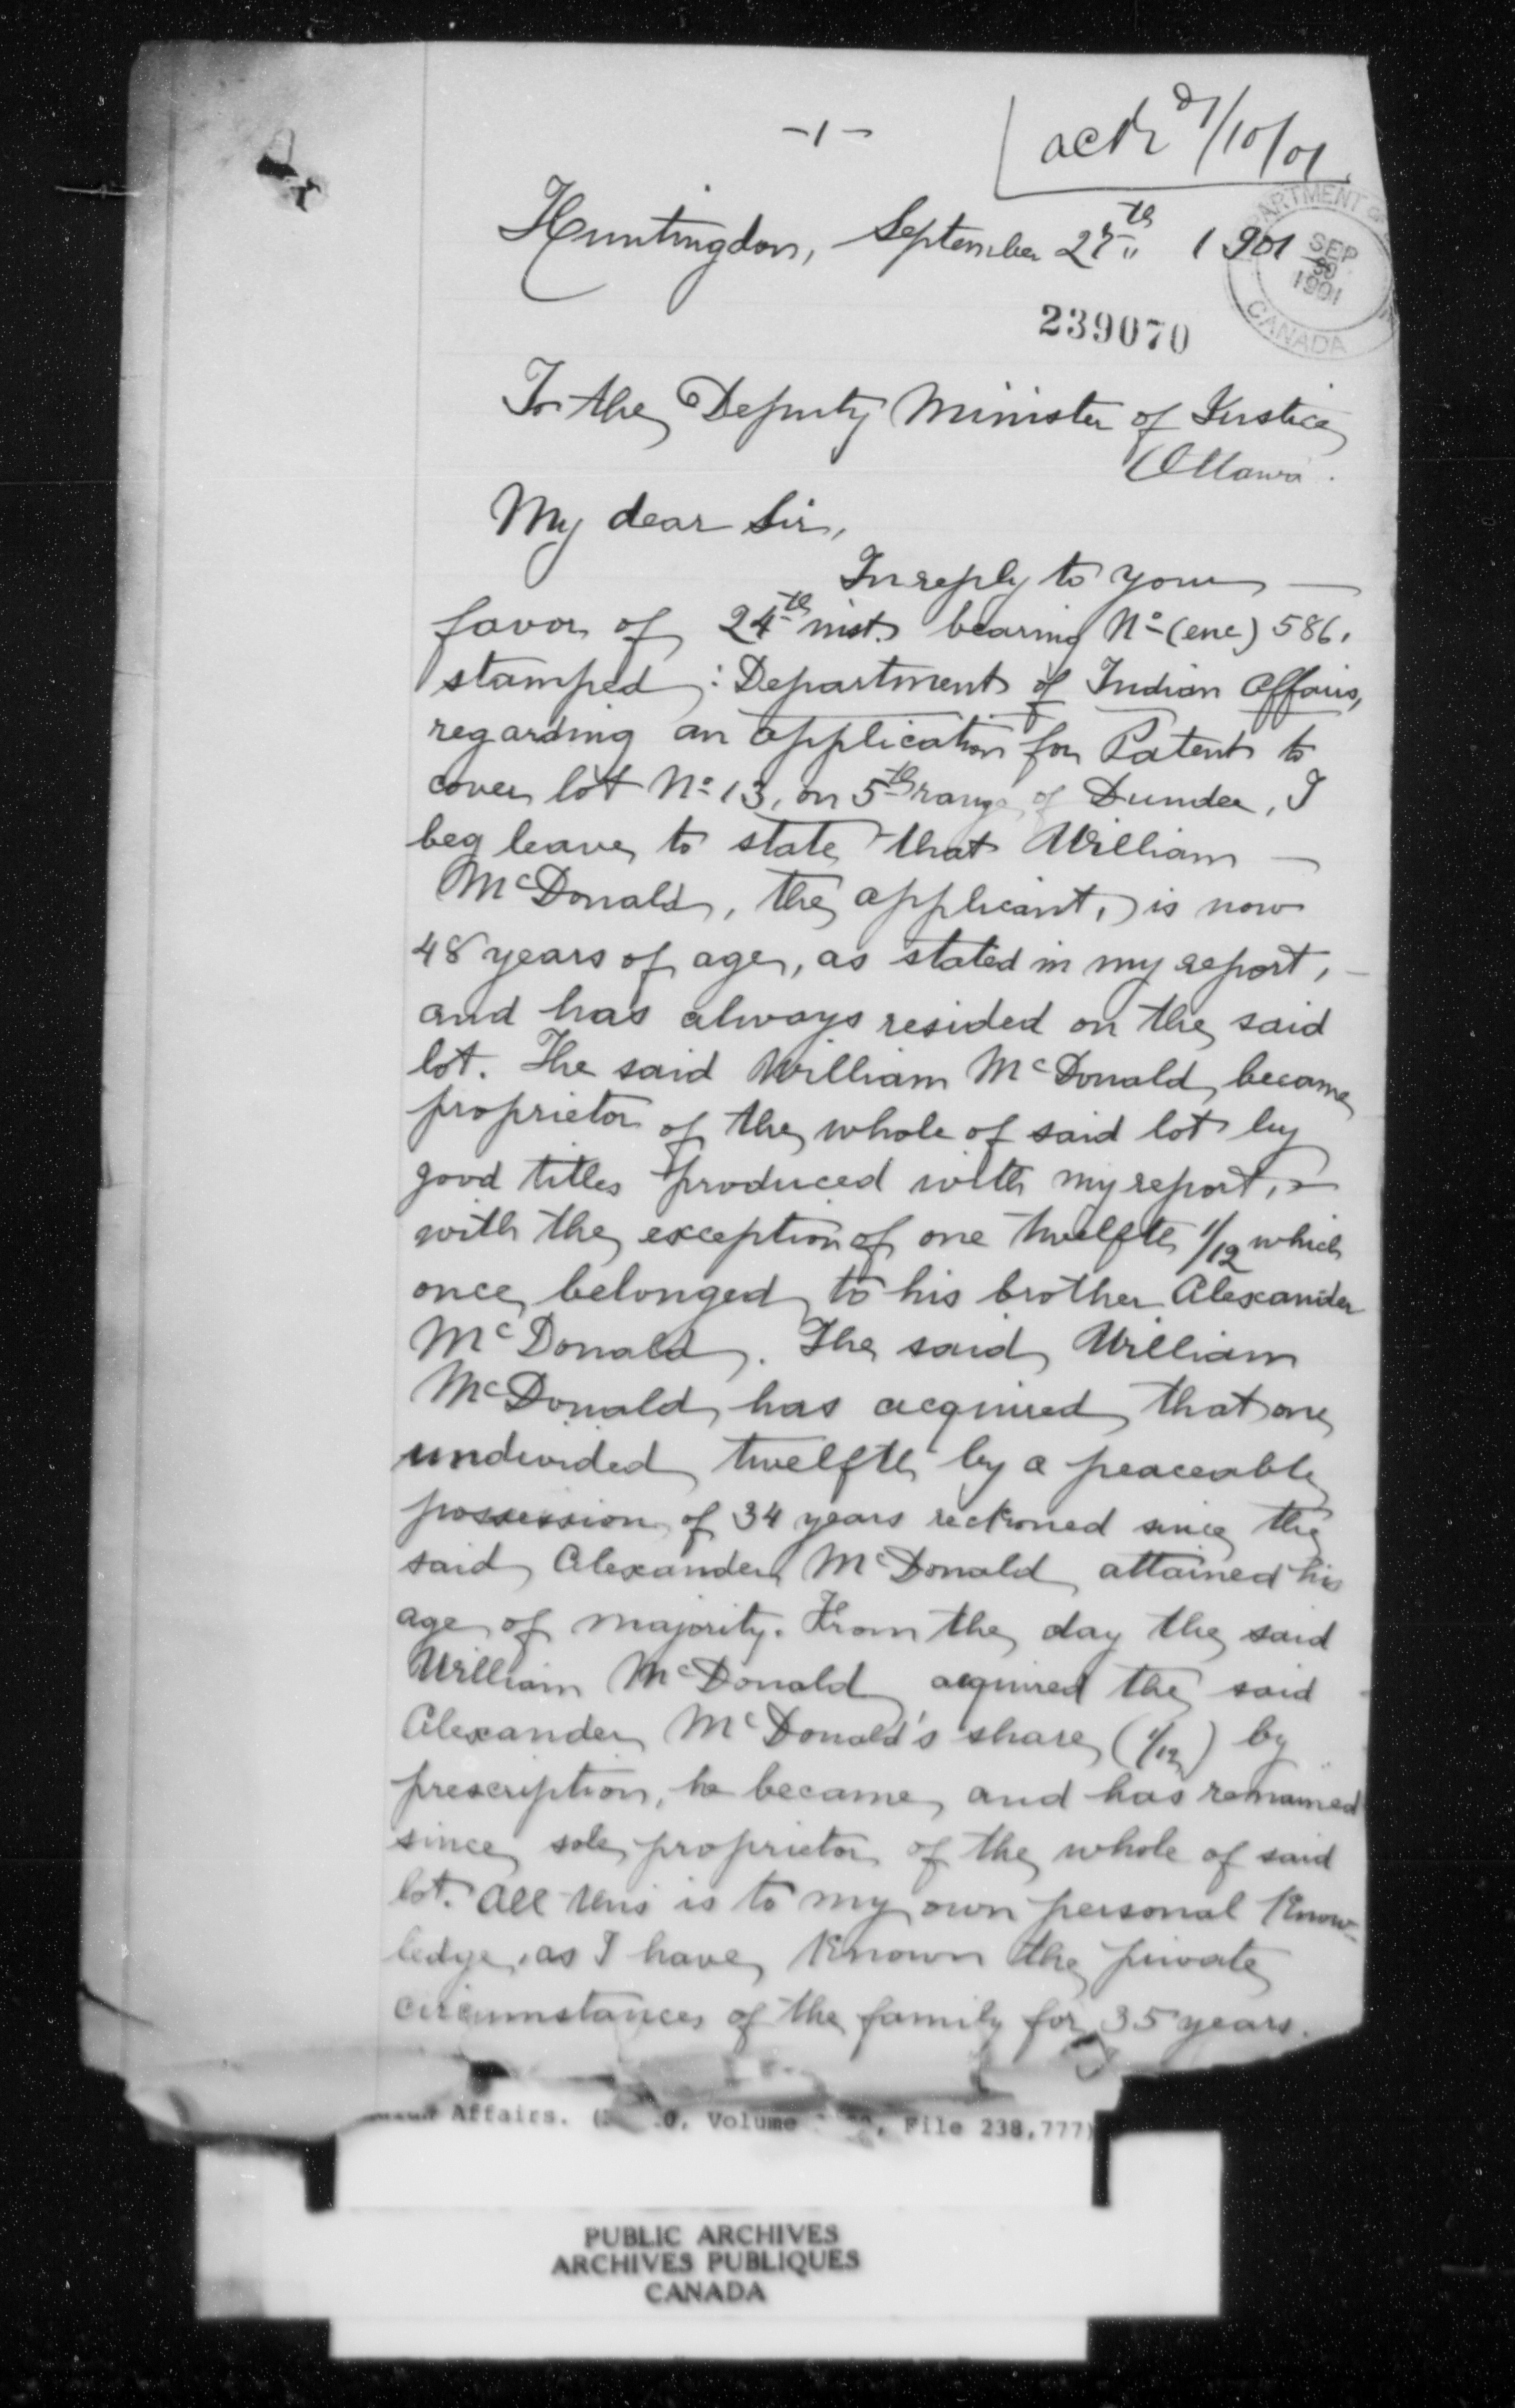 -1-
ack 2/10/01
Huntingdon, September 27th 1901
DEPARTMENT OF
SEP
30
1901
CANADA
239070
To the Deputy Minister of Justice
Ottawa.
My dear Sir,
In reply to your
favor of 24th inst. bearing No (enc) 586.
stamped: Department of Indian Affairs,
regarding an application for Patent to
cover lot No 13, on 5th range of Dundee, I
beg leave to state that William
McDonald, the applicant, is now
48 years of age, as stated in my report,
and has always resided on the said
lot. The said William McDonald became
proprietor of the whole of said lot by
good titles produced with my report,
with the exception of one twelfth 1/12 which
once belonged to his brother Alexander
McDonald. The said William
McDonald has acquired that one
undivided twelfth by a peaceable
possession of 34 years reckoned since the
said Alexander McDonald attained his
age of majority. From the day the said
William McDonald acquired the said
Alexander McDonald's share (1/12) by
prescription, he became, and has remained
since sole proprietor of the whole of said
lot. All this is to my own personal Know-
ledge, as I have Known the private
circumstances of the family for 35 years.
Affairs. ( 0, Volume , File 238,777)
PUBLIC ARCHIVES
ARCHIVES PUBLIQUES
CANADA